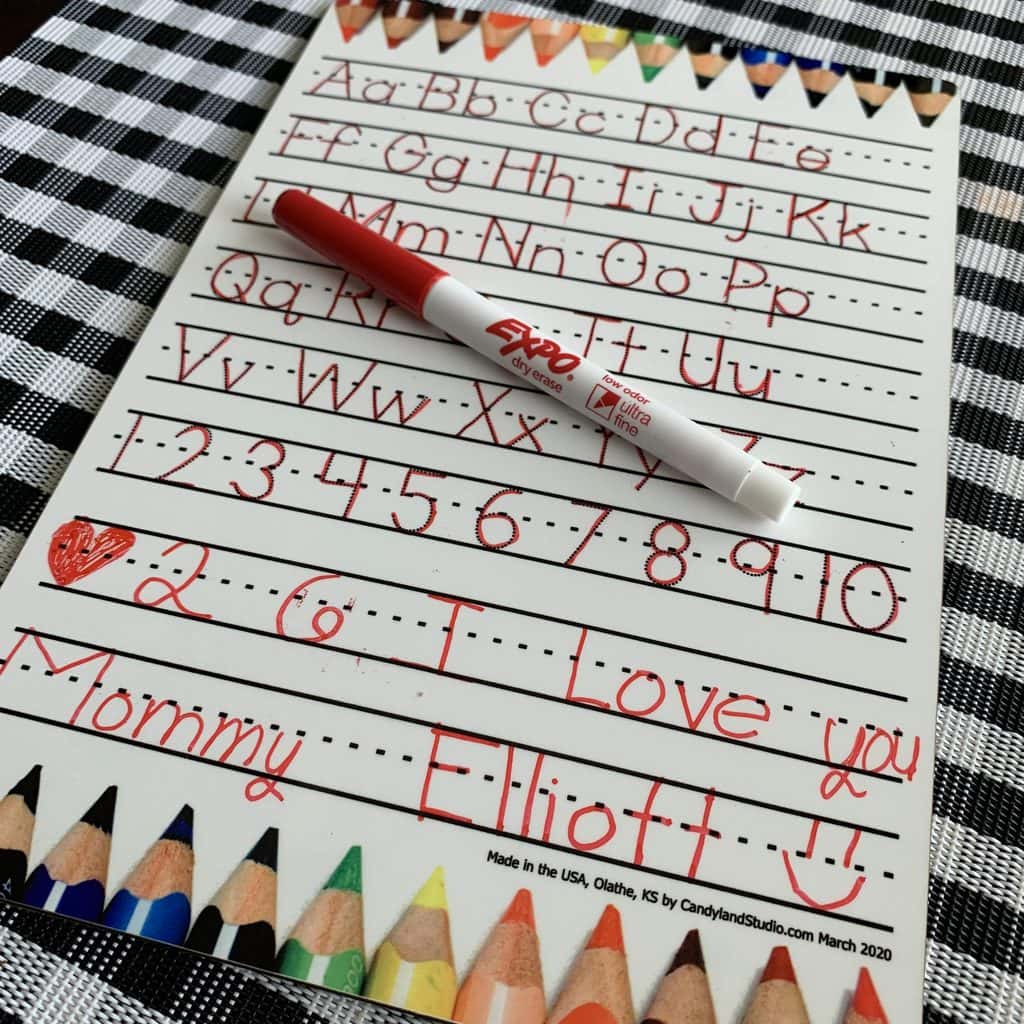 Aa Bb Cc Dd Ee
Ff Gg Hh Ii Jj Kk
Mm Nn Oo Pp
Qq Tt Uu
Vv Ww Xx Yy Zz
1 2 3 4 5 6 7 8 9 10
2 6 I Love you
Mommy Elliott
EXPO®
dry erase
low odor
ultra
fine
Made in the USA, Olathe, KS by CandylandStudio.com March 2020